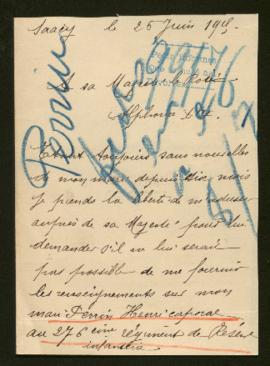 Saacy le 25 Juin 1915.
Perrin
A sa Majesté le Roi
Alphonse
Etant toujours sans nouvelles
de mon mari depuis dix mois
je prends la liberté de m'adresser
auprès de sa Majesté pour lui
demander s'il ne lui serait
pas possible de me fournir
les renseignements sur mon
mari Perrin Henri caporal
au 276 eme régiment de Réserve
infanterie